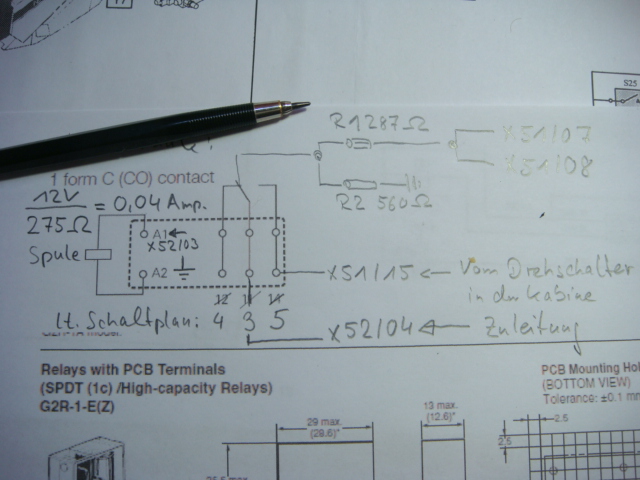 17
S25
R1 287Ω
X51/07
X51/08
1 form C (CO) contact
12V
275Ω
= 0,04 Amp.
R2 560Ω
A1
X52/03
Spule
A2
X51/15 Vom Drehschalter
in der Kabine
12 11 14
lt. Schaltplan: 4 3 5
X52/04 Zuleitung
Relays with PCB Terminals
(SPDT (1c) /High-capacity Relays)
G2R-1-E(Z)
PCB Mounting Hol
(BOTTOM VIEW)
Tolerance: ±0.1 mm
29 max.
(28.6)*
13 max.
(12.6)*
2.5
2.5